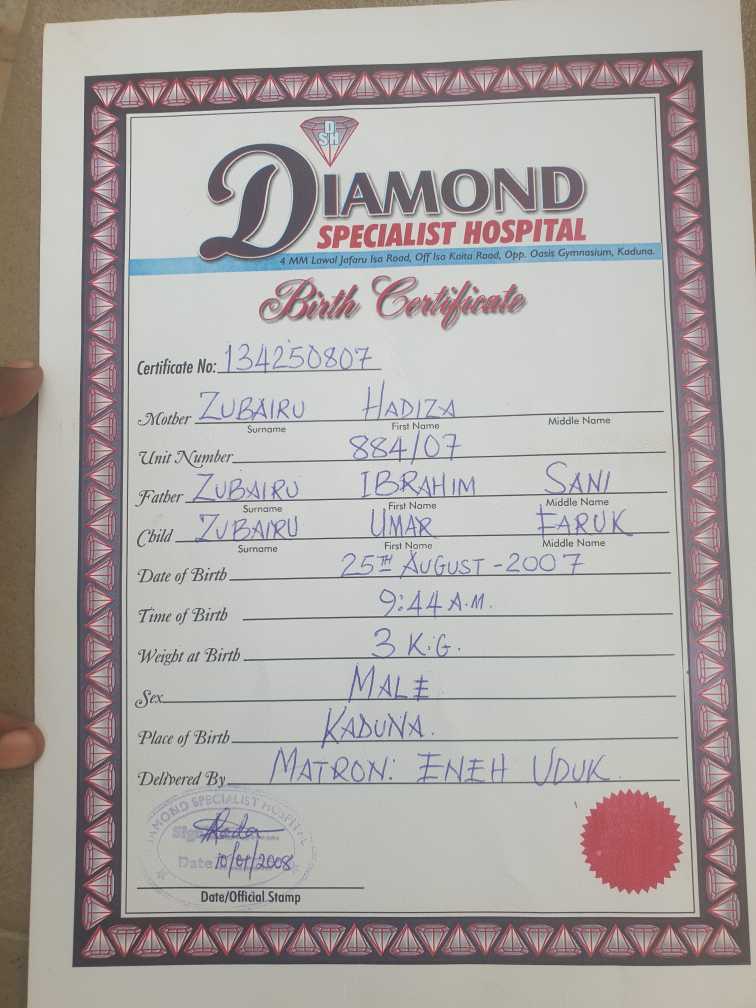 DSH
DIAMOND
SPECIALIST HOSPITAL
4 MM Lawal Jafaru Isa Road, Off Isa Kaita Road, Opp. Oasis Gymnasium, Kaduna.
Birth Certificate
Certificate No: 134250807
Mother ZUBAIRU HADIZA
Surname First Name Middle Name
Unit Number 884/07
Father ZUBAIRU IBRAHIM SANI
Surname First Name Middle Name
Child ZUBAIRU UMAR FARUK
Surname First Name Middle Name
Date of Birth 25TH AUGUST - 2007
Time of Birth 9:44 A.M.
Weight at Birth 3 K.G.
Sex MALE
Place of Birth KADUNA.
Delivered By MATRON: ENEH UDUK.
DIAMOND SPECIALIST HOSPITAL
Date 10/01/2008
Date/Official Stamp